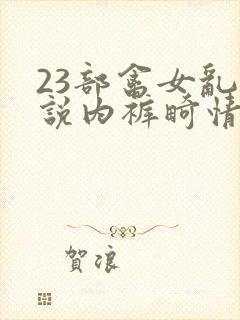 23部畜女乱
説内裤畸情
賀浪